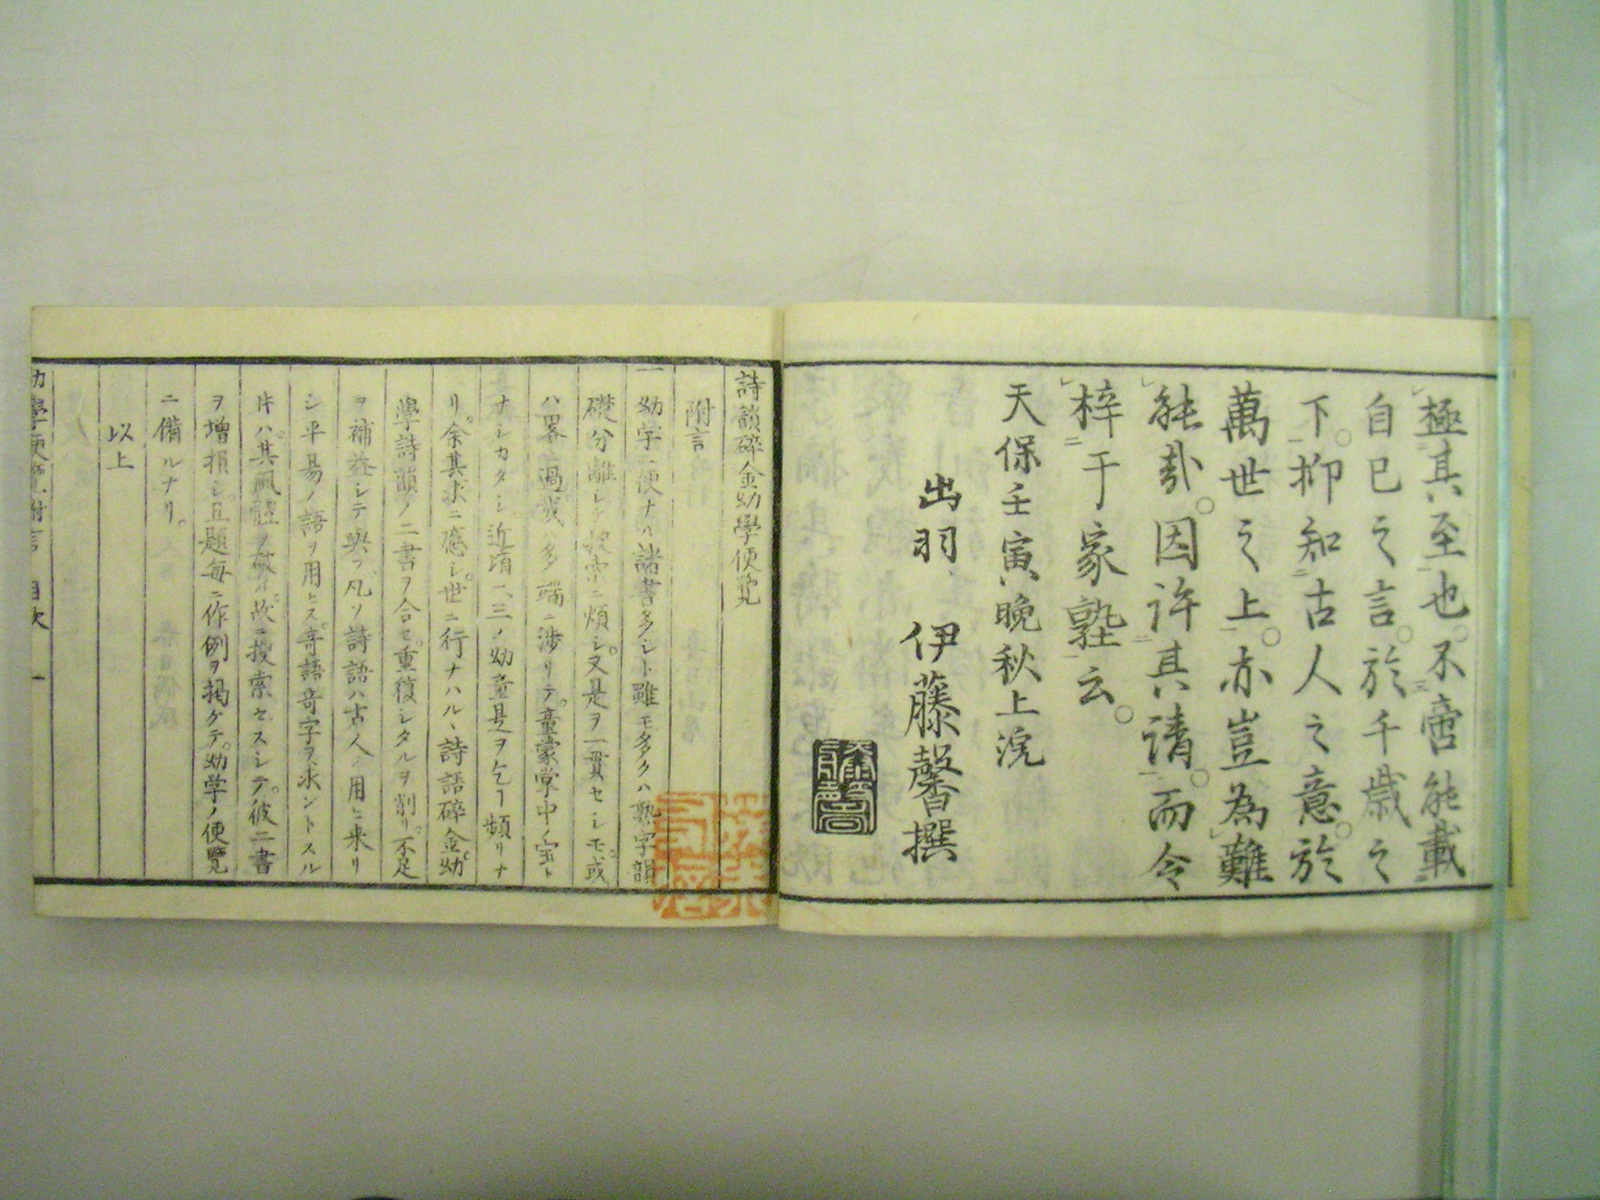 極其至也不啻能載
自已之言於千歳之
下抑知古人之意於
萬世之上亦豈為難
能哉因許其請而令
梓于家塾云
天保壬寅晩秋上浣
出羽 伊藤馨撰
詩韻碎金幼學便覧
附言
一幼学ニ便ナル諸書多シト雖モ多クハ熟字韻
礎分離シテ捜索ニ煩シ又是ヲ一貫セシモ或
ハ畧ニ過或ハ多端ニ渉リテ童蒙掌中ノ宝ト
ナシカタシ近頃一二三ノ幼童是ヲ乞フ頻リナ
リ余其求ニ應シ世ニ行ナハルヽ詩語碎金幼
學詩韻ノ二書ヲ合セ重復シタルヲ削リ不足
ヲ補益シテ與フ凡ソ詩語ハ古人ノ用ヒ来リ
シ平易ノ語ヲ用ヒス奇語奇字ヲ求ントスル
片ハ其風體ヲ敗ル故ニ捜索セスシテ彼二書
ヲ増損シ五題毎ニ作例ヲ掲ケテ幼学ノ便覧
ニ備ルナリ
以上
幼學便覧附言 目次 一